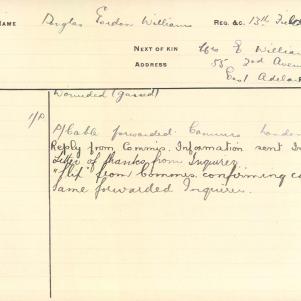 NAME Douglas Gordon Williams REG. &C. 13th Field
NEXT OF KIN Mrs E William
ADDRESS 55 2nd Avenu
East Adelai
Wounded (gassed)
P/Cable forwarded Commrs London
Reply from Commis. Information sent In
Letter of thanks from Inquirer
"flix" from Commis. confirming ca
Same forwarded Inquirer.